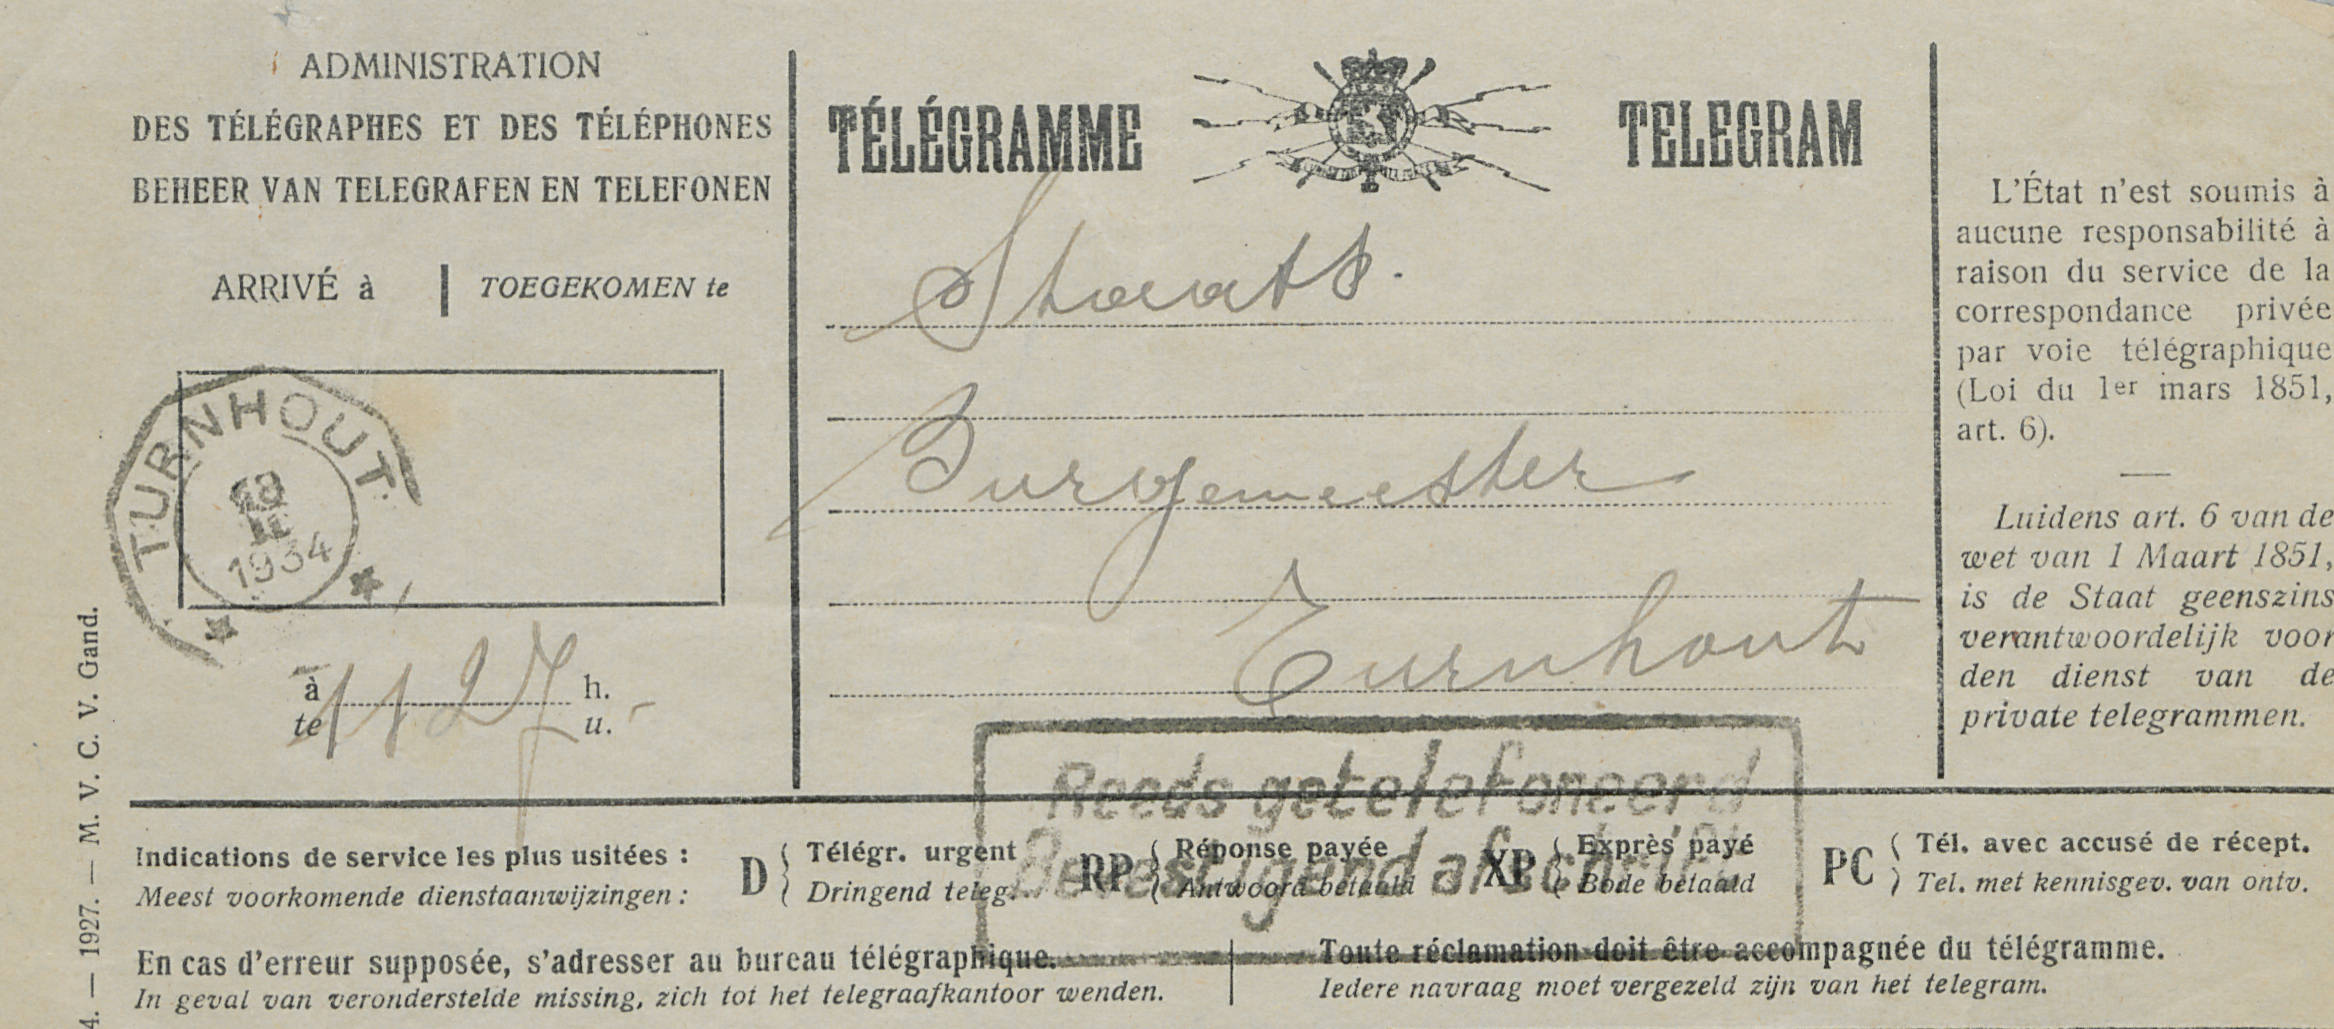 ADMINISTRATION
DES TÉLÉGRAPHES ET DES TÉLÉPHONES
BEHEER VAN TELEGRAFEN EN TELEFONEN
ARRIVÉ à | TOEGEKOMEN te
TURNHOUT
1934
à
te 11 27 h.
u.
TÉLÉGRAMME TELEGRAM
Burgemeester
Turnhout
L'État n'est soumis à
aucune responsabilité à
raison du service de la
correspondance privée
par voie télégraphique
(Loi du 1er mars 1851,
art. 6).
Luidens art. 6 van de
wet van 1 Maart 1851,
is de Staat geenszins
verantwoordelijk voor
den dienst van de
private telegrammen.
Reeds getelefoneerd
Bevestigend afschrift
Indications de service les plus usitées :
Meest voorkomende dienstaanwijzingen :
D Télégr. urgent
Dringend teleg.
RP Réponse payée
Antwoord betaald
XP Exprès payé
Bode betaald
PC Tél. avec accusé de récept.
Tel. met kennisgev. van ontv.
En cas d'erreur supposée, s'adresser au bureau télégraphique.
In geval van veronderstelde missing, zich tot het telegraafkantoor wenden.
Toute réclamation doit être accompagnée du télégramme.
Iedere navraag moet vergezeld zijn van het telegram.
4. — 1927. — M. V. C. V. Gand.